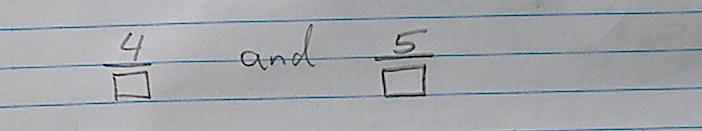 4/□ and 5/□